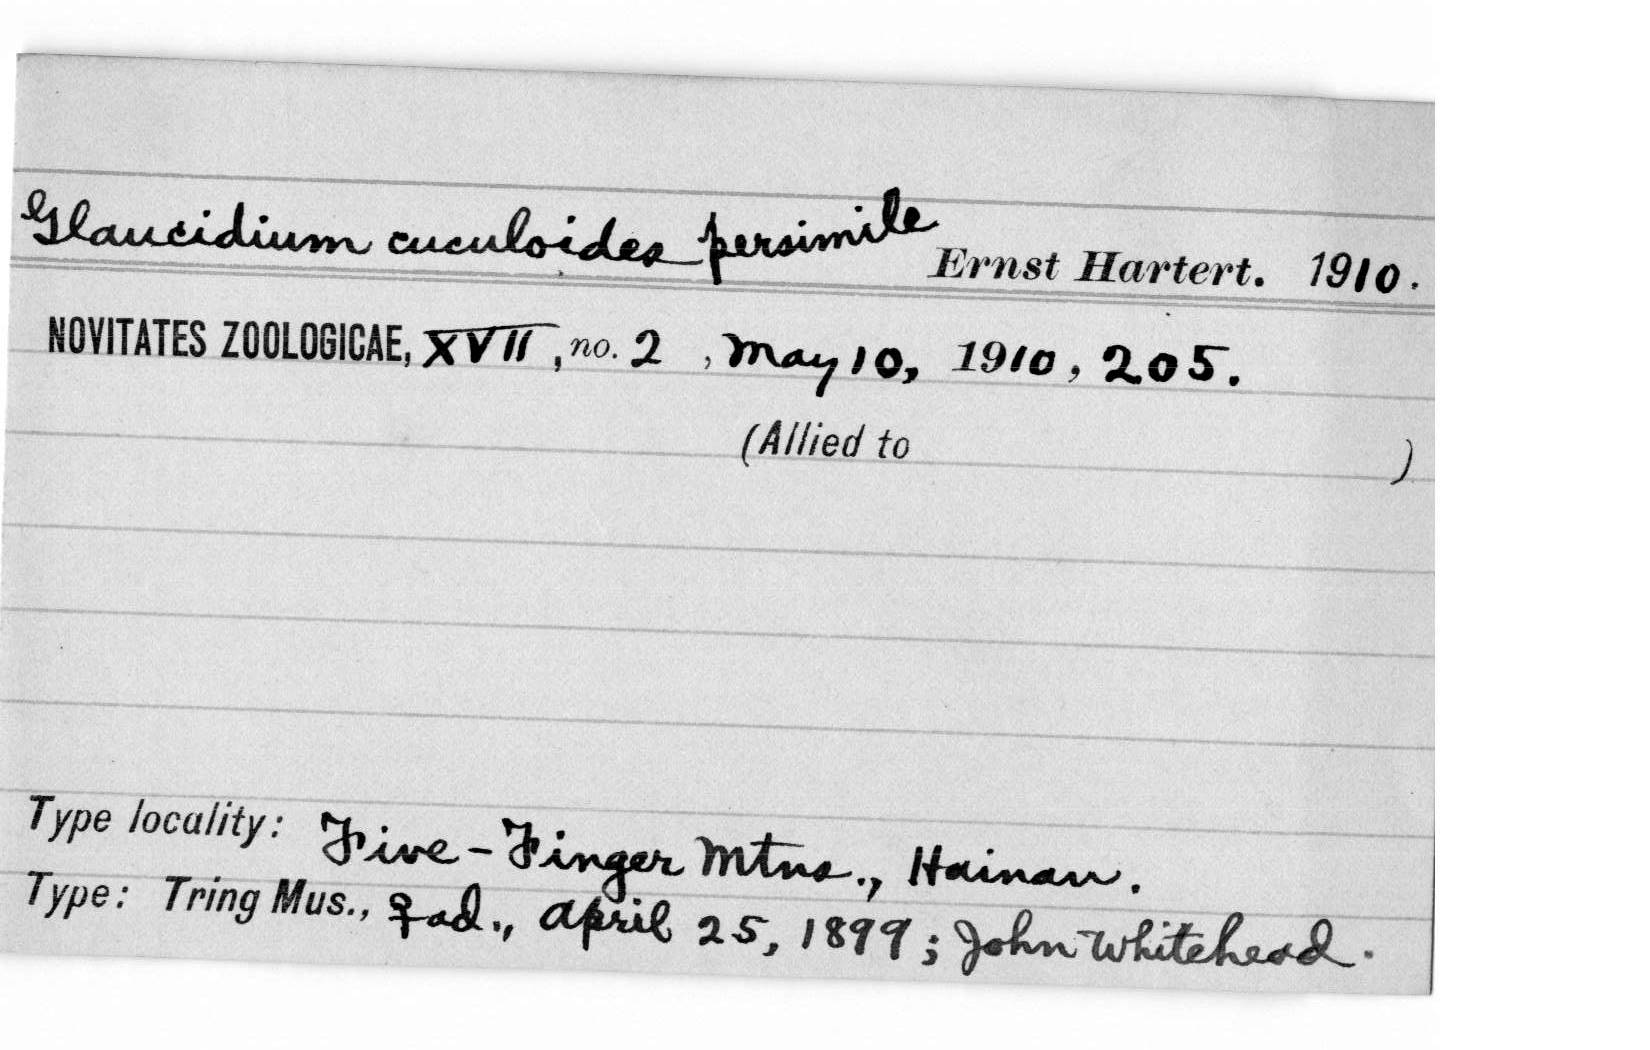 Glaucidium cuculoides persimile Ernst Hartert. 1910.
NOVITATES ZOOLOGICAE, XVII, no. 2, May 10, 1910, 205.
(Allied to )
Type locality: Five-Finger Mtns., Hainan.
Type: Tring Mus., ♀ ad., April 25, 1899; John Whitehead.